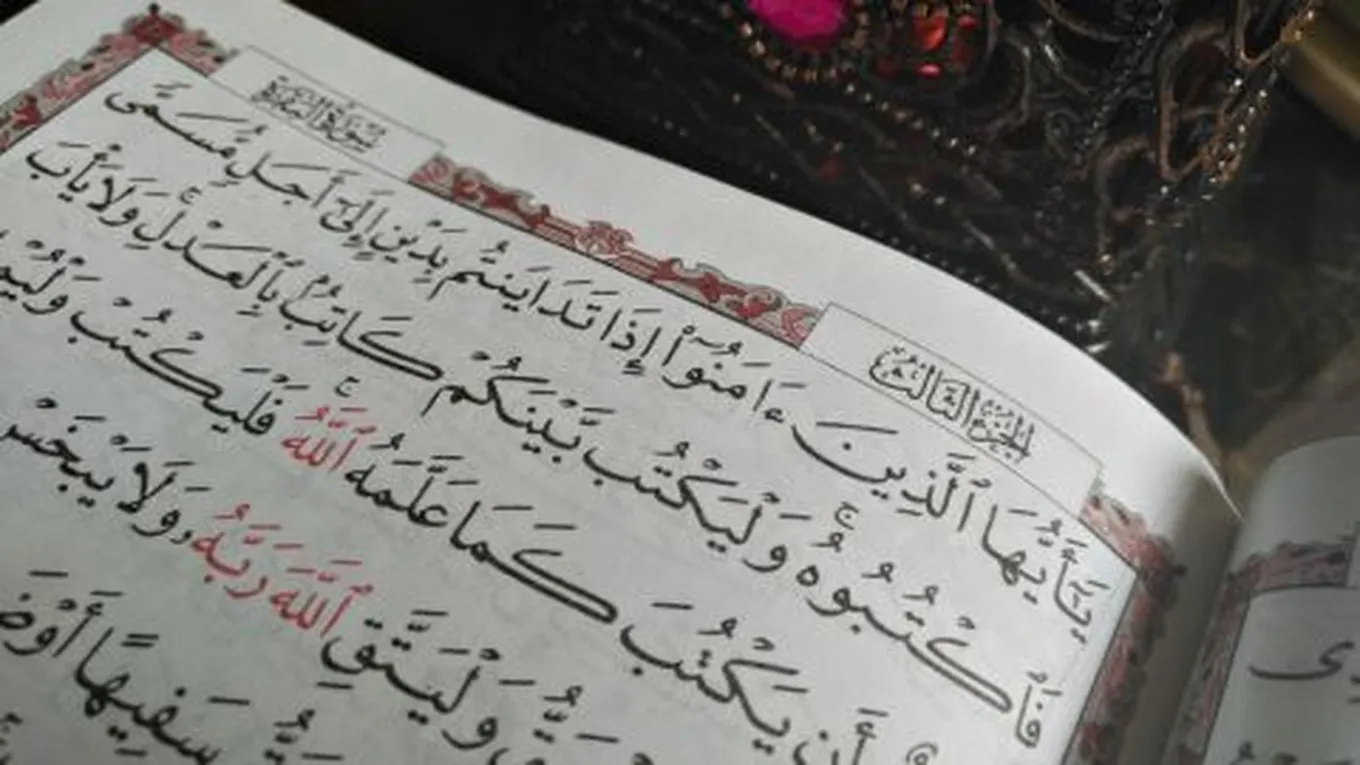 الجزء الثالث
سورة البقرة
يَـٰٓأَيُّهَا ٱلَّذِينَ ءَامَنُوٓا۟ إِذَا تَدَايَنتُم بِدَيْنٍ إِلَىٰٓ أَجَلٍ مُّسَمًّى
فَٱكْتُبُوهُ ۚ وَلْيَكْتُب بَّيْنَكُمْ كَاتِبٌۢ بِٱلْعَدْلِ ۚ وَلَا يَأْبَ
أَن يَكْتُبَ كَمَا عَلَّمَهُ ٱللَّهُ ۚ فَلْيَكْتُبْ
وَلْيَتَّقِ ٱللَّهَ رَبَّهُۥ وَلَا يَبْخَسْ
سَفِيهًا أَوْ